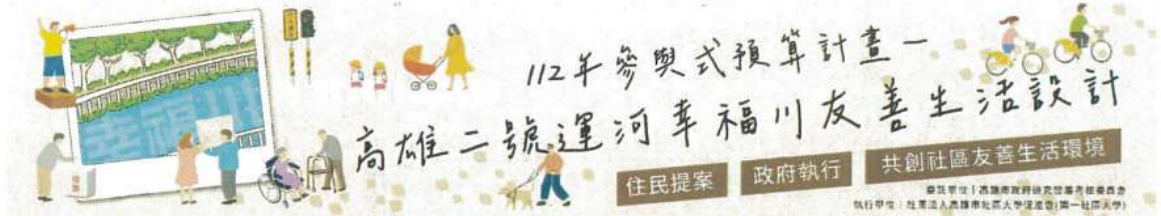 112年參與式預算計畫一
高雄二號運河幸福川友善生活設計
住民提案 政府執行 共創社區友善生活環境
委託單位｜高雄市政府研究發展考核委員會
執行單位｜社團法人高雄市社區大學促進會(第一社區大學)
幸福川